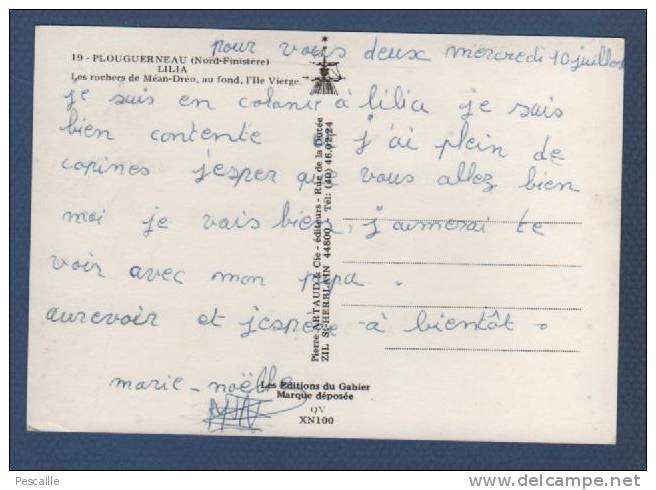 pour vous deux mercredi 10 juillet
19 - PLOUGUERNEAU (Nord-Finistère)
LILIA
Les rochers de Méan-Dréo, au fond, l'Ile Vierge.
je suis en colonie à lilia je suis
bien contente et j'ai plein de
copines j'esper que vous allez bien
moi je vais bien, j'aimerai te
voir avec mon papa.
aurevoir et j'espère à bientôt.
marie-noëlle
Pierre ARTAUD & Cie - éditeurs - Rue de la Dutée
ZIL St-HERBLAIN 44800 - Tél: (40) 46.02.24
Les Editions du Gabier
Marque déposée
QV
XN100
Pescaille
www.delcampe.net